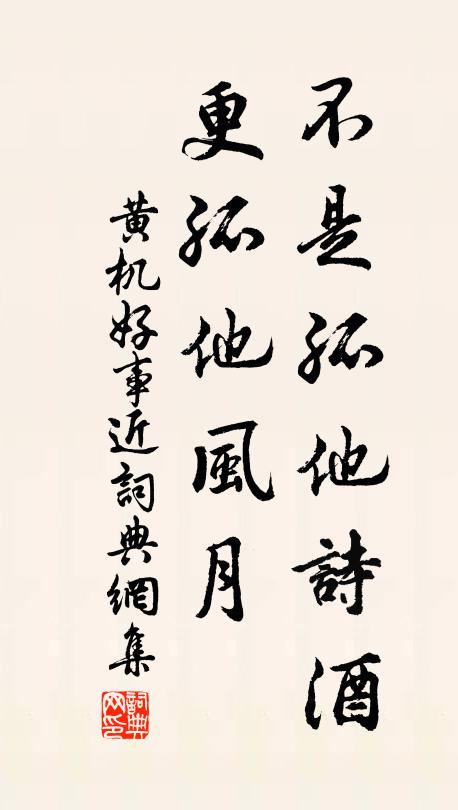 不是孤他詩酒
更孤他風月
黄机好事近詞典網集
詞典网印